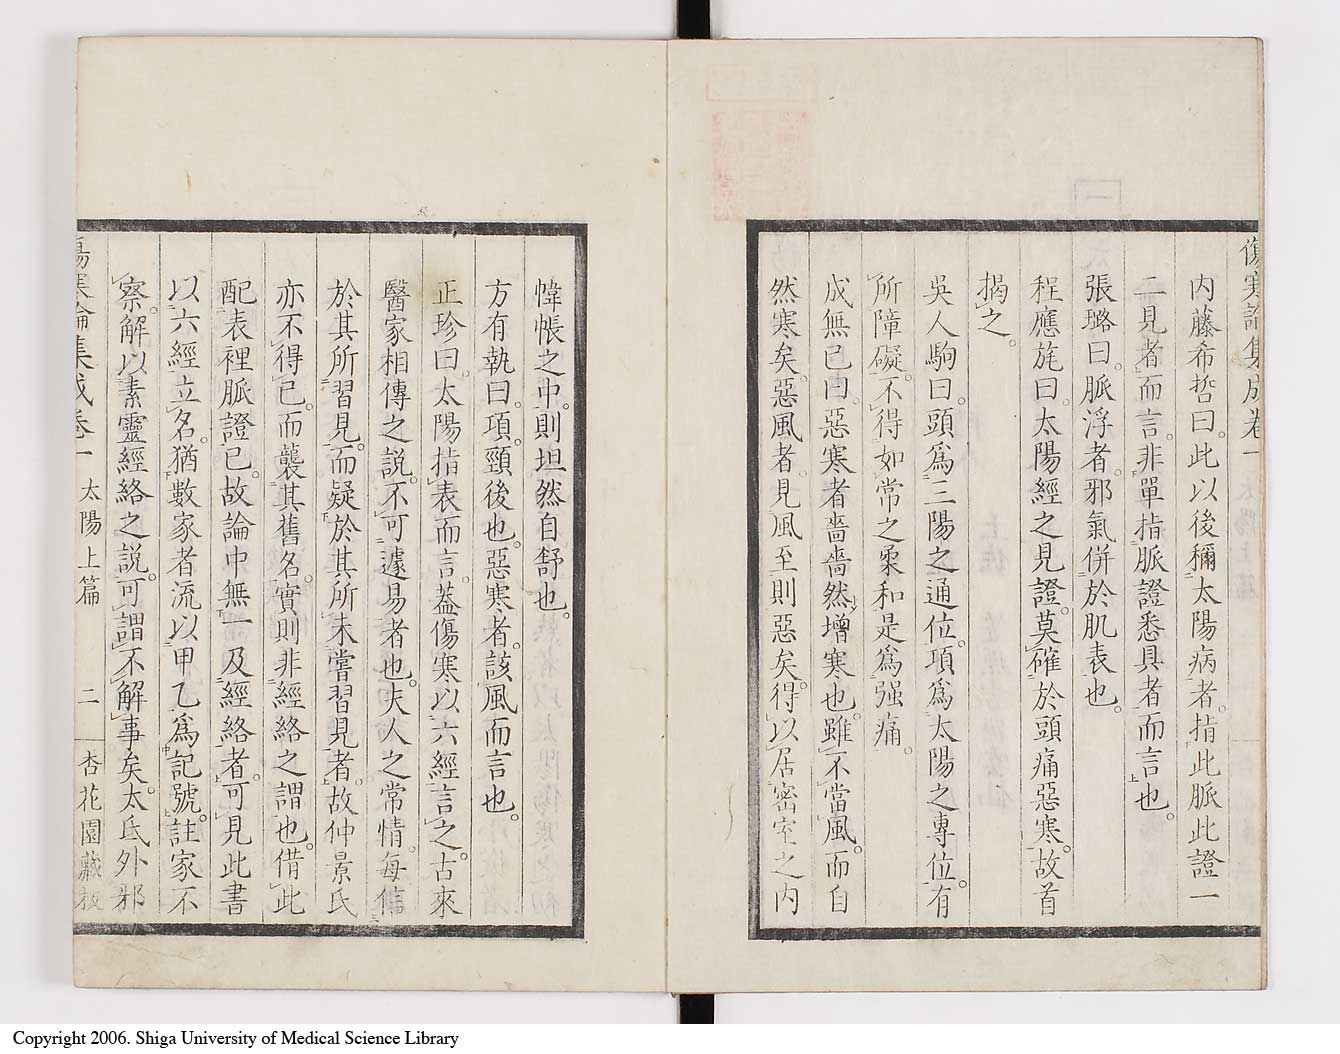 傷寒論集成卷一
内藤希哲曰。此以後穪太陽病者。指此脈此證一
二見者而言。非單指脈證悉具者而言也。
張璐曰。脈浮者。邪氣併於肌表也。
程應旄曰。太陽經之見證。莫確於頭痛惡寒。故首
揭之。
吳人駒曰。頭爲三陽之通位。項爲太陽之專位。有
所障礙。不得如常之柔和。是爲强痛。
成無已曰。惡寒者。嗇嗇然増寒也。雖不當風。而自
然寒矣。惡風者。見風至則惡矣。得以居密室之内
幃帳之中。則坦然自舒也。
方有執曰。項。頸後也。惡寒者。該風而言也。
正珍曰。太陽指表而言。葢傷寒以六經言之。古來
醫家相傳之說。不可遽易者也。夫人之常情。每信
於其所習見。而疑於其所未嘗習見者。故仲景氏
亦不得已。而襲其舊名。實則非經絡之謂也。借此
配表裡脈證已。故論中無一及經絡者。可見此書
以六經立名。猶數家者流以甲乙爲記號。註家不
察。解以素靈經絡之說。可謂不解事矣。太氐外邪
傷寒論集成卷一 太陽上篇 二 杏花園藏板
Copyright 2006. Shiga University of Medical Science Library